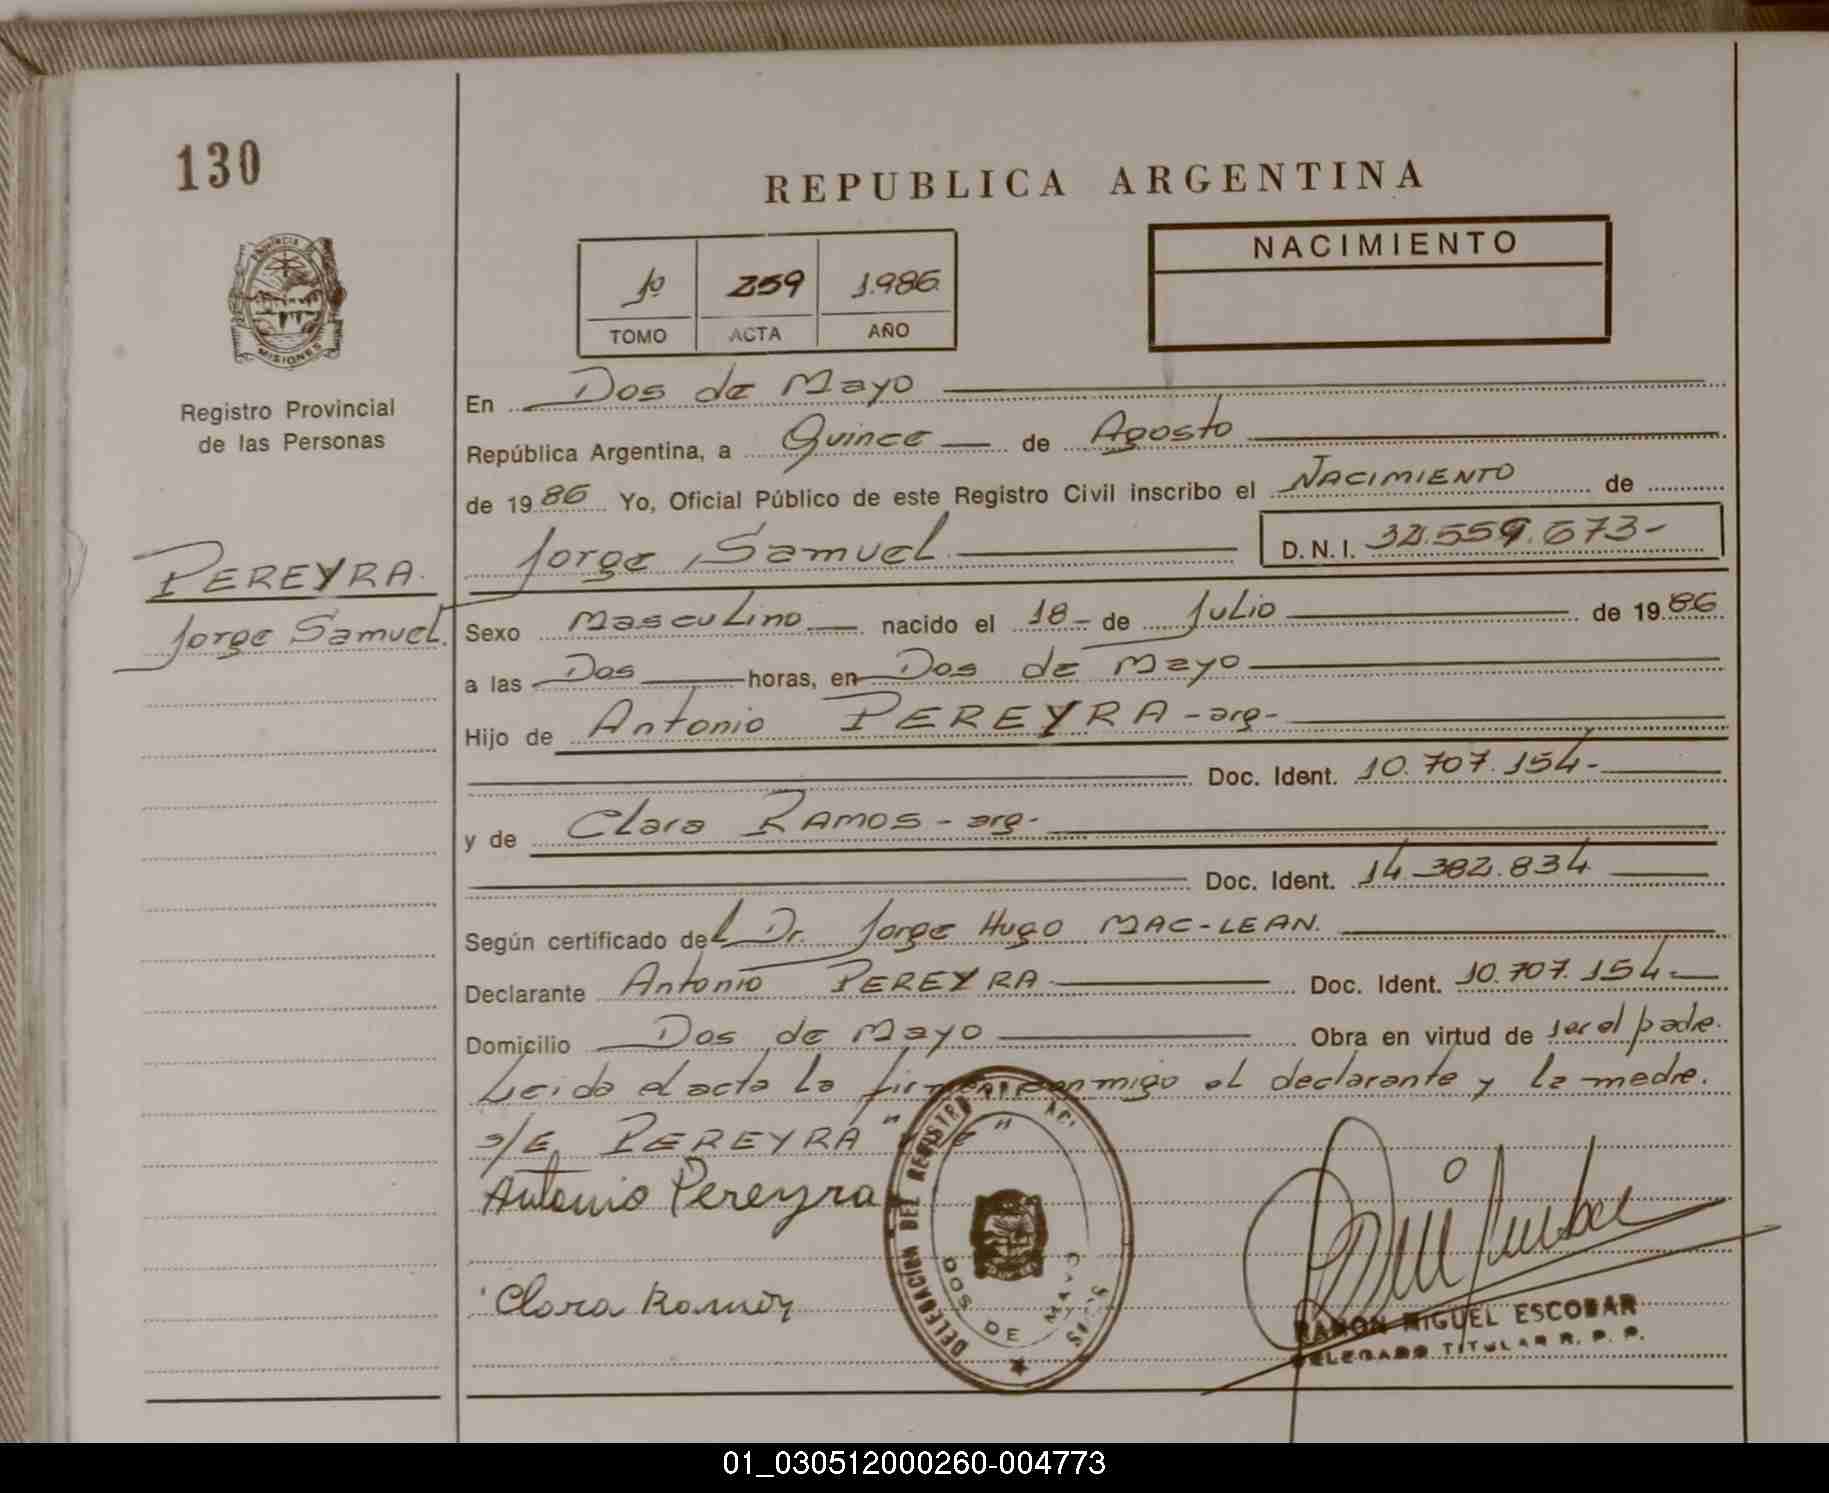 130
REPUBLICA ARGENTINA
NACIMIENTO
1º 259 1.986
TOMO ACTA AÑO
PROVINCIA DE
MISIONES
Registro Provincial
de las Personas
PEREYRA.
Jorge Samuel.
En Dos de Mayo
República Argentina, a Quince de Agosto
de 19 86 Yo, Oficial Público de este Registro Civil inscribo el NACIMIENTO de
Jorge Samuel D.N.I. 32.559.673-
Sexo Masculino nacido el 18- de Julio de 19 86
a las Dos horas, en Dos de Mayo
Hijo de Antonio PEREYRA -arg-
Doc. Ident. 10.707.154-
y de Clara RAMOS - arg-
Doc. Ident. 14.382.834
Según certificado del Dr. Jorge Hugo MAC-LEAN.
Declarante Antonio PEREYRA Doc. Ident. 10.707.154-
Domicilio Dos de Mayo Obra en virtud de ser el padre.
Leida el acta la firman conmigo el declarante y la madre.
s/E PEREYRA "
Antonio Pereyra
Clara Ramos
DELEGACION DEL REGISTRO
DOS DE MAYO
RAMON MIGUEL ESCOBAR
DELEGADO TITULAR R. P. P.
01_030512000260-004773